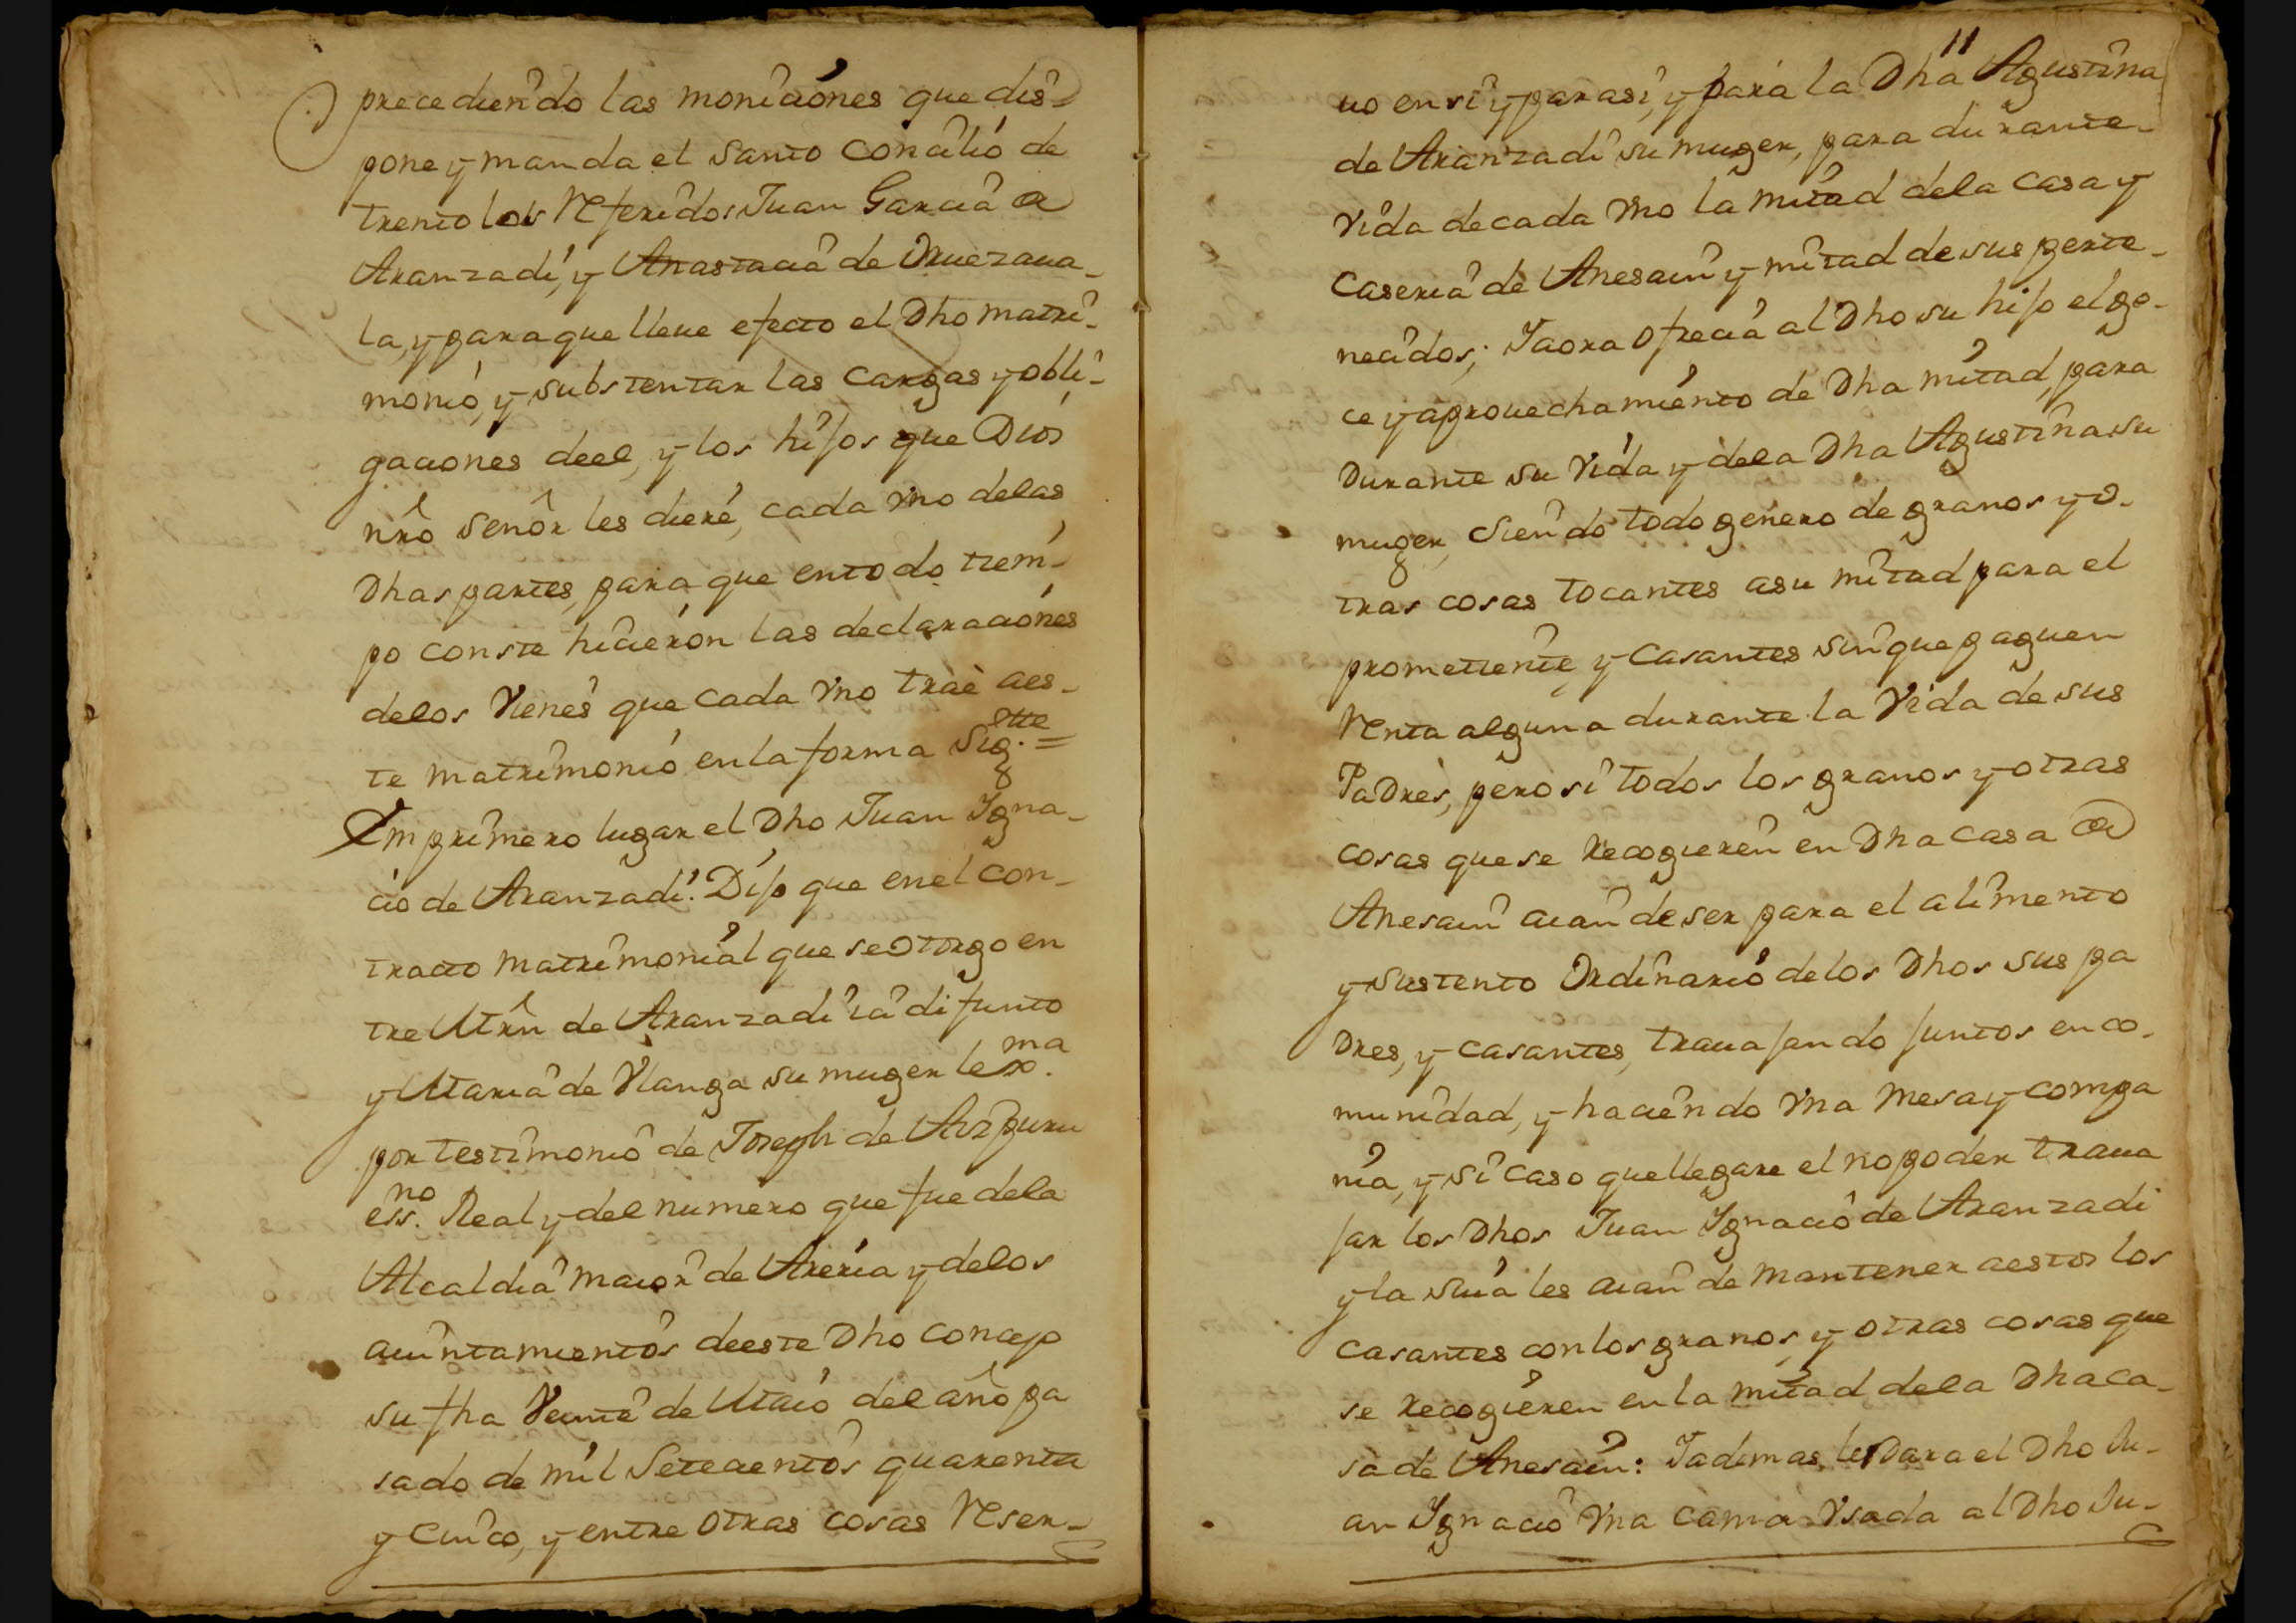 precediendo las moniciónes que dis=
pone y manda el santo concilió de
trento los Referidos Juan Garciá a
Aranzadi, y Anastaciá de Oruezaua-
la, y para que lleue efecto el Dho matri-
monió, y substentar las cargas y obli-
gaciones deel, y los hijos que Dios
nrô senôr les dieré, cada vno delas
Dhas partes, para que entodo tiem-
po conste hicierón las declaraciónes
delos Vienes que cada vno tràè aes-
te matrimonió en la forma Sig.tte =
Em primero lugar el Dho Juan Ygna-
cio de Aranzadi. Dijo que en el con-
tracto matrimoniál que se otorgo en
tre Mrñ de Aranzadi iá difunto
y Mariá de Vlanga su muger lexma.
por testimonió de Joseph de Aizpuru
essno. Real y del numero que fue dela
Alcaldiá maior de Areria y delos
aiuntamientos deeste Dho concejo
su fha Veinte de Maió del año pa
sado de mil Setecientos quarenta
y Cinco, y entre otras cosas Reser-
11
uo en si y para si, y para la Dha Agustina
de Aranzadi su muger, para durante-
vida de cada vno la mitad dela casa y
caseriá de Anesain y mitad de sus perte-
necidos; Yaora ofreciá al Dho su hijo el go-
ce y aprouechamiénto de Dha mitad, para
Durante su Vida y dela Dha Agustina su
muger, Siendo todo genero de granos y o-
tras cosas tocantes asu mitad para el
prometiente, y Casantes sin que paguen
Renta alguna durante la Vida de sus
Padres, pero si todos los granos y otras
cosas que se Recogieren en Dha casa a
Anesain aian de ser para el alimento
y sustento Ordinarió delos Dhos sus pa
Dres, y casantes, trauajando juntos en co-
munidad, y haciendo vna mesa y compa
ñia, y si caso que llegare el no poder traua
jar los Dhos Juan Ygnació de Aranzadi
y la suiá les aian de mantener aestos los
casantes con los granos, y otras cosas que
se Recogiéren en la mitad dela Dha ca-
sa de Anesain: Yademas les Dara el Dho Ju-
an Ygnació vna cama Vsada al Dho Ju-